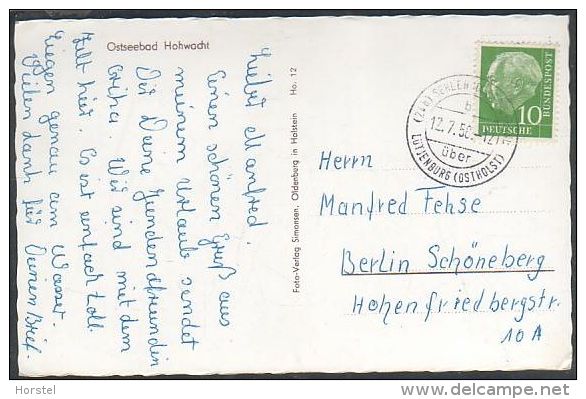 Ostseebad Hohwacht
Lieber Manfred.
Einen schönen Gruß aus
meinem Urlaub sendet
Dir Deine Jugendfreundin
Wir sind mit dem
Zelt hier. Es ist einfach toll.
liegen genau am Wasser.
Vielen Dank für Deinen Brief.
Foto-Verlag Simonsen, Oldenburg in Holstein Ho. 12
10
DEUTSCHE
BUNDESPOST
12.7.
über
LÜTJENBURG (OSTHOLST)
Herrn
Manfred Fehse
Berlin Schöneberg
Hohenfriedbergstr.
10 A
Horstel
www.delcampe.net